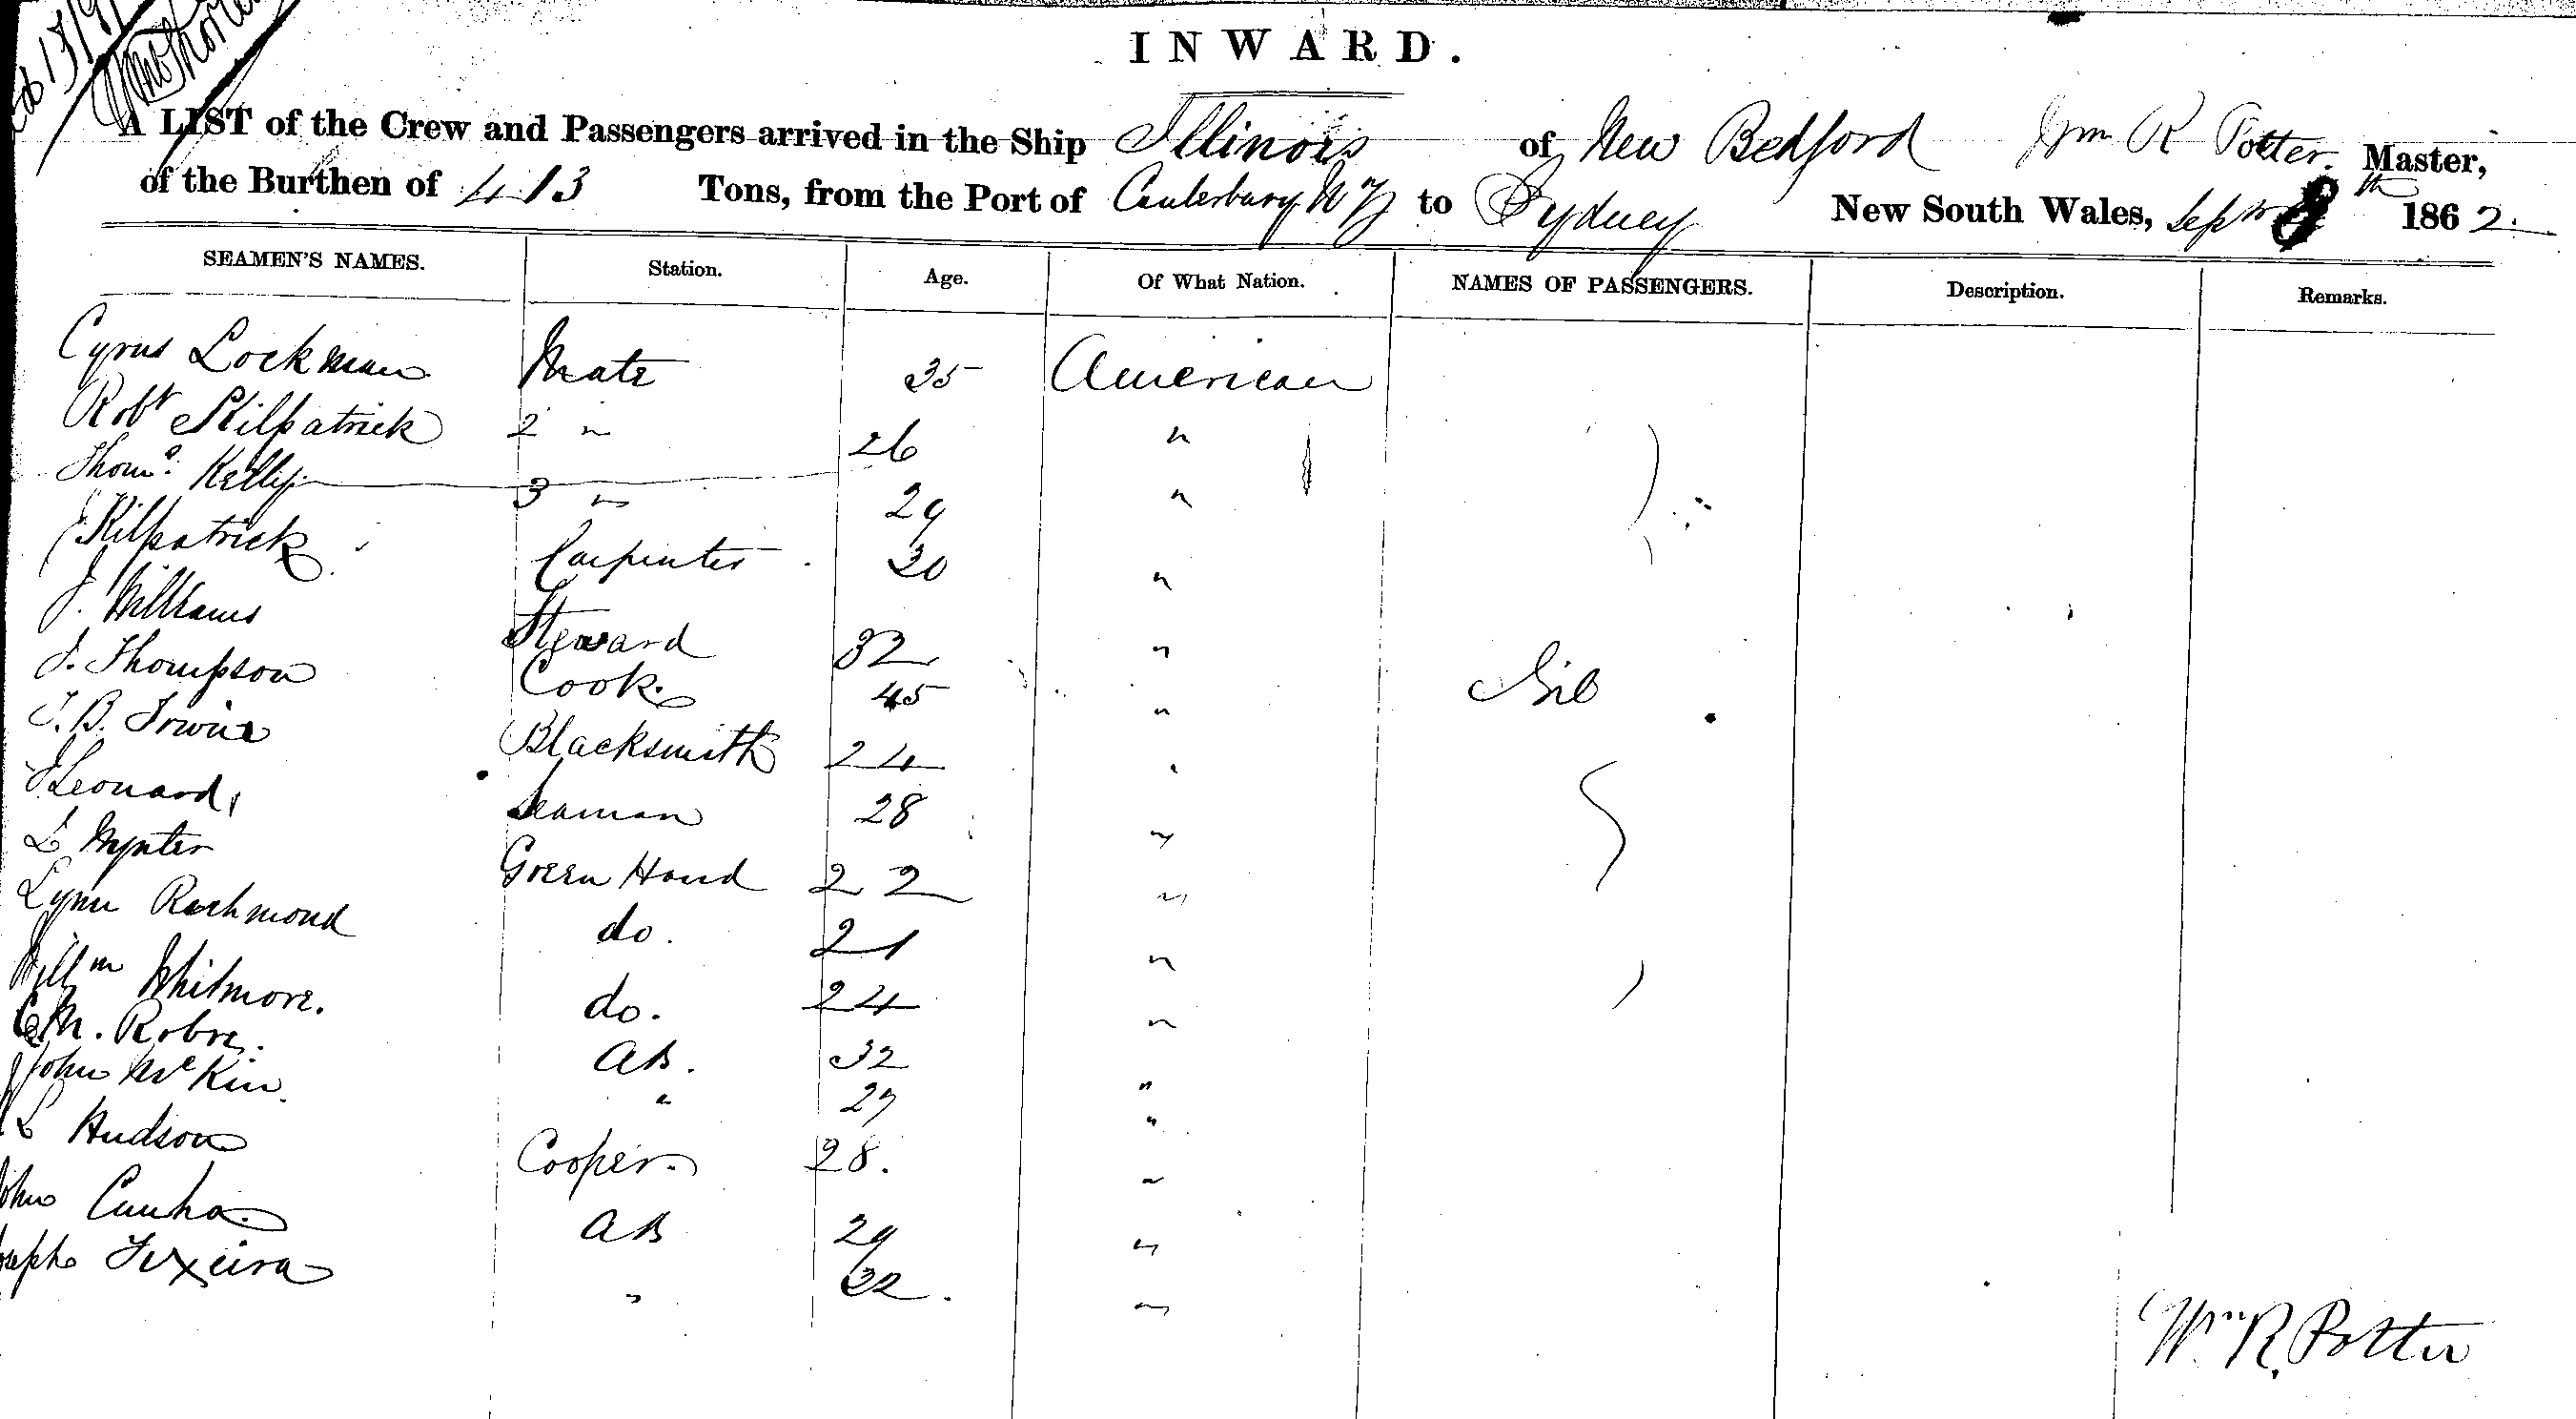 INWARD.
A LIST of the Crew and Passengers arrived in the Ship Illinois of New Bedford Wm R Potter. Master,
of the Burthen of 413 Tons, from the Port of Canterbury NZ to Sydney New South Wales, Septr 8th 1862.
SEAMEN'S NAMES. Station. Age. Of What Nation. NAMES OF PASSENGERS. Description. Remarks.
Cyrus Lockman Mate 35 American
Robt Kilpatrick 2 " 26 "
Thoms. Kelly 3 " 29 "
J. Kilpatrick Carpenter 30 "
J. Williams Steward 32 "
J. Thompson Cook. 45 " Nil
J. B. Irwine Blacksmith 24 "
J Leonard Seaman 28 "
L Mynter Green Hand 22 "
Lynn Richmond do. 21 "
Willm Whitmore. do. 24 "
M. Robre. AB. 32 "
John McKin " 27 "
L Hudson Cooper. 28. "
John Cunha. AB 29 "
Joseph Texeira " 32. "
Wm R. Potter